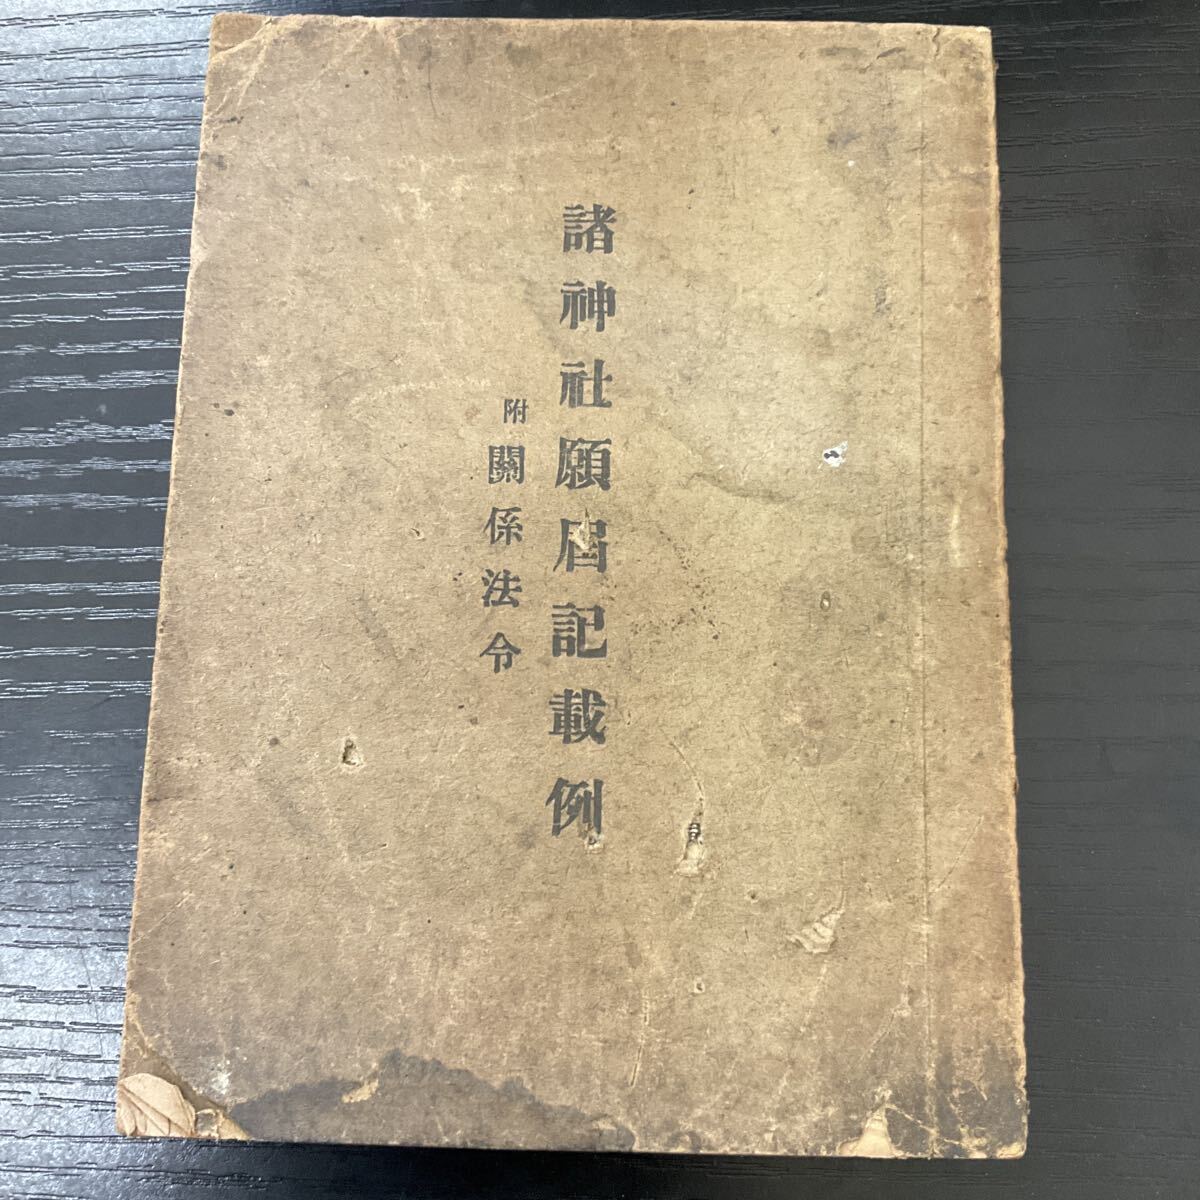 諸神社願屆記載例
附 關係法令